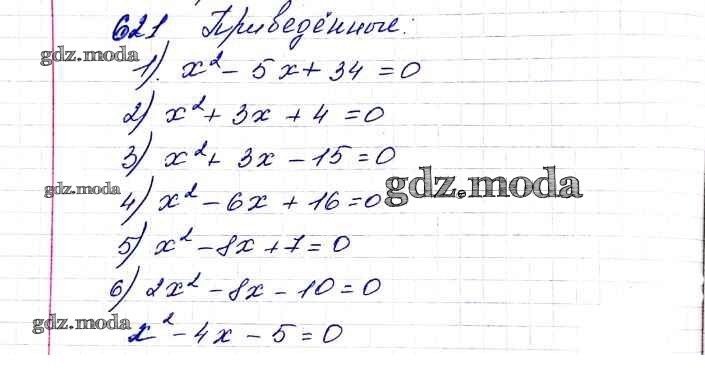 621 Приведённые:
gdz.moda
1). x² - 5x + 34 = 0
2) x² + 3x + 4 = 0
3) x² + 3x - 15 = 0
gdz.moda
gdz.moda
4) x² - 6x + 16 = 0
5) x² - 8x + 7 = 0
6) 2x² - 8x - 10 = 0
gdz.moda
x² - 4x - 5 = 0